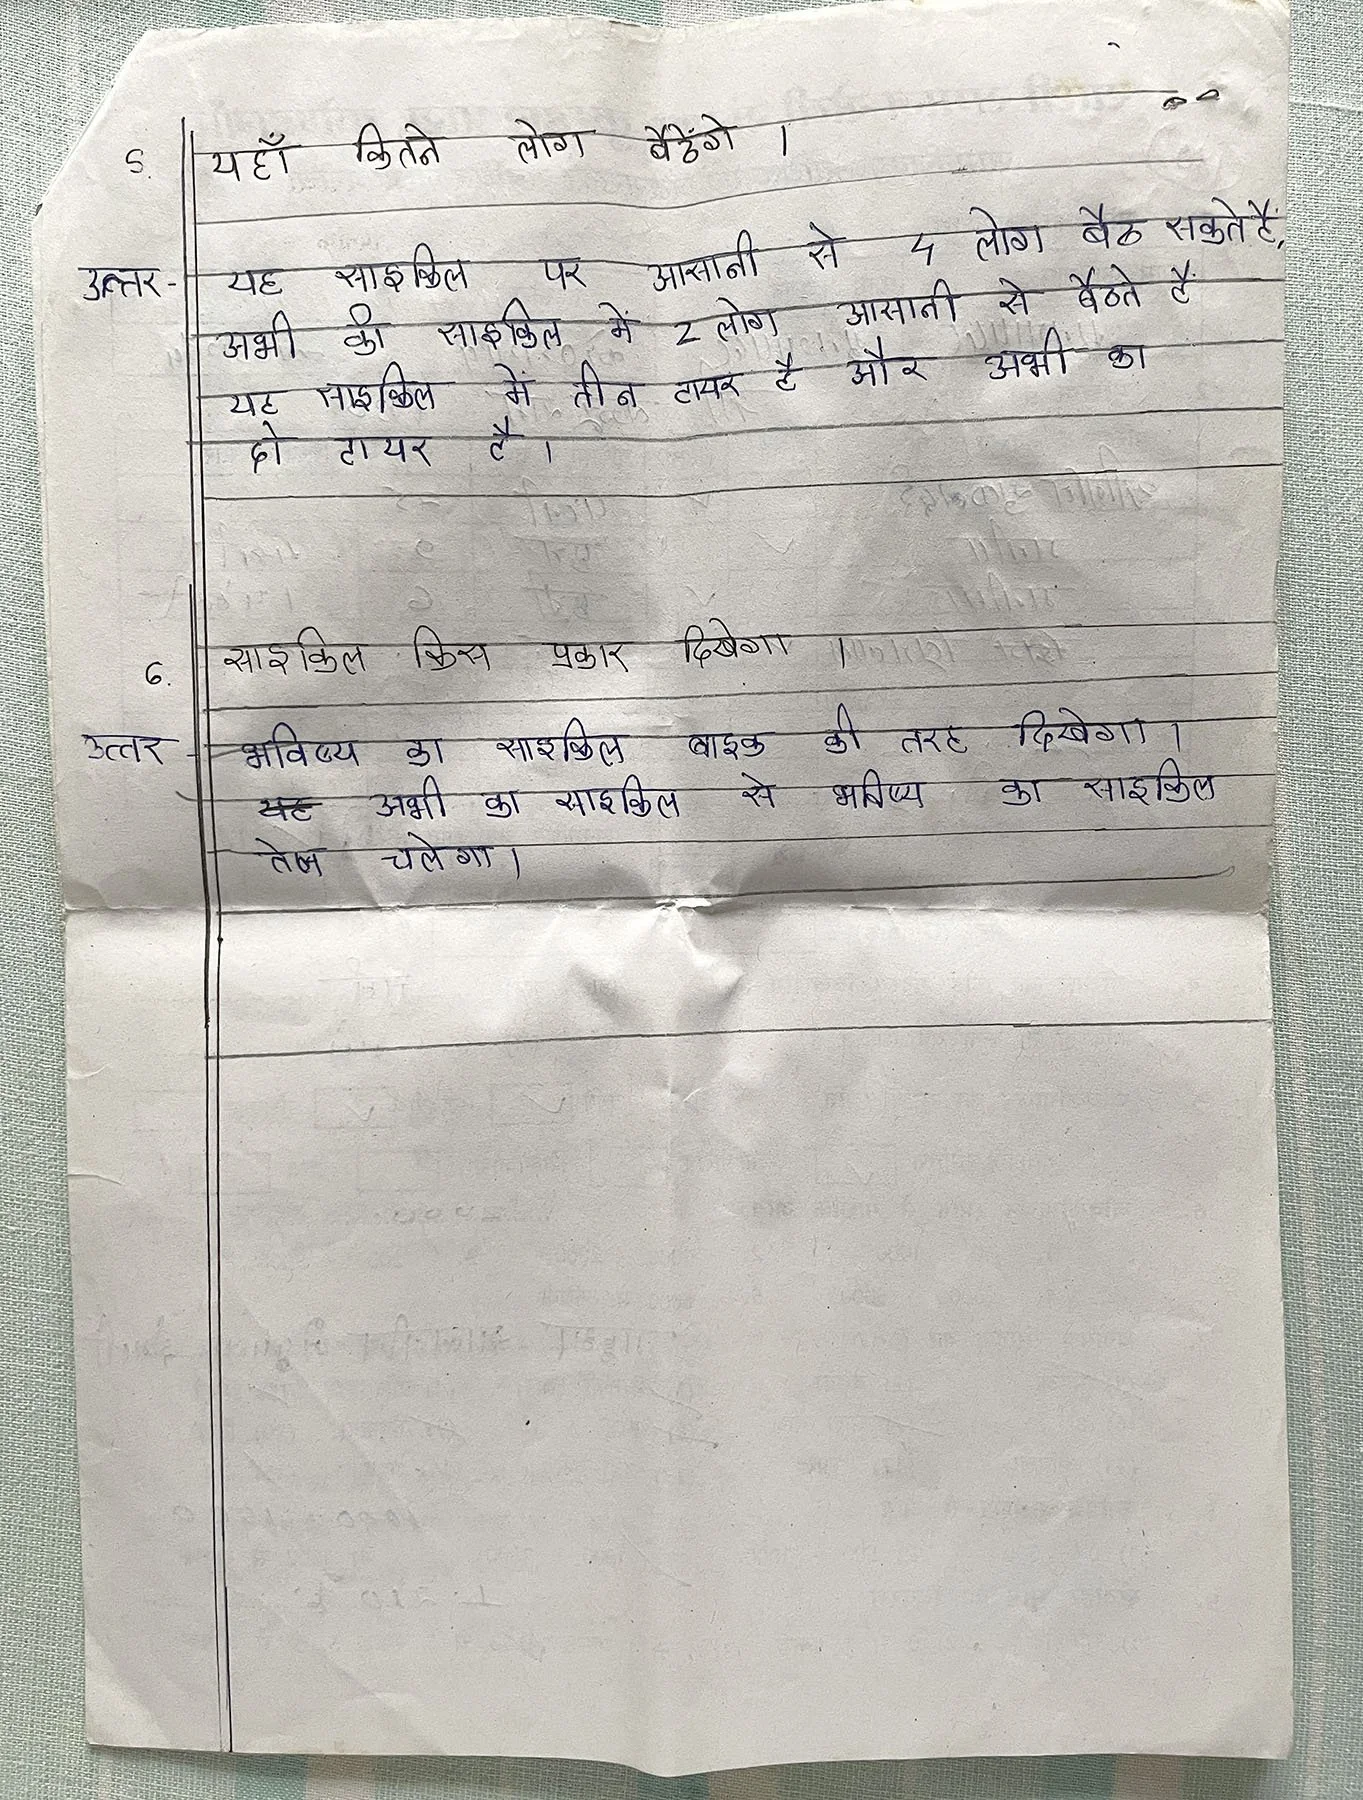 5. यहाँ कितने लोग बैठेंगे ।
उत्तर - यह साइकिल पर आसानी से 4 लोग बैठ सकते हैं,
अभी की साइकिल में 2 लोग आसानी से बैठते हैं
यह साइकिल में तीन टायर है और अभी का
दो टायर है ।
6. साइकिल किस प्रकार दिखेगा ।
उत्तर - भविष्य का साइकिल बाइक की तरह दिखेगा ।
यह अभी का साइकिल से भविष्य का साइकिल
तेज चलेगा ।